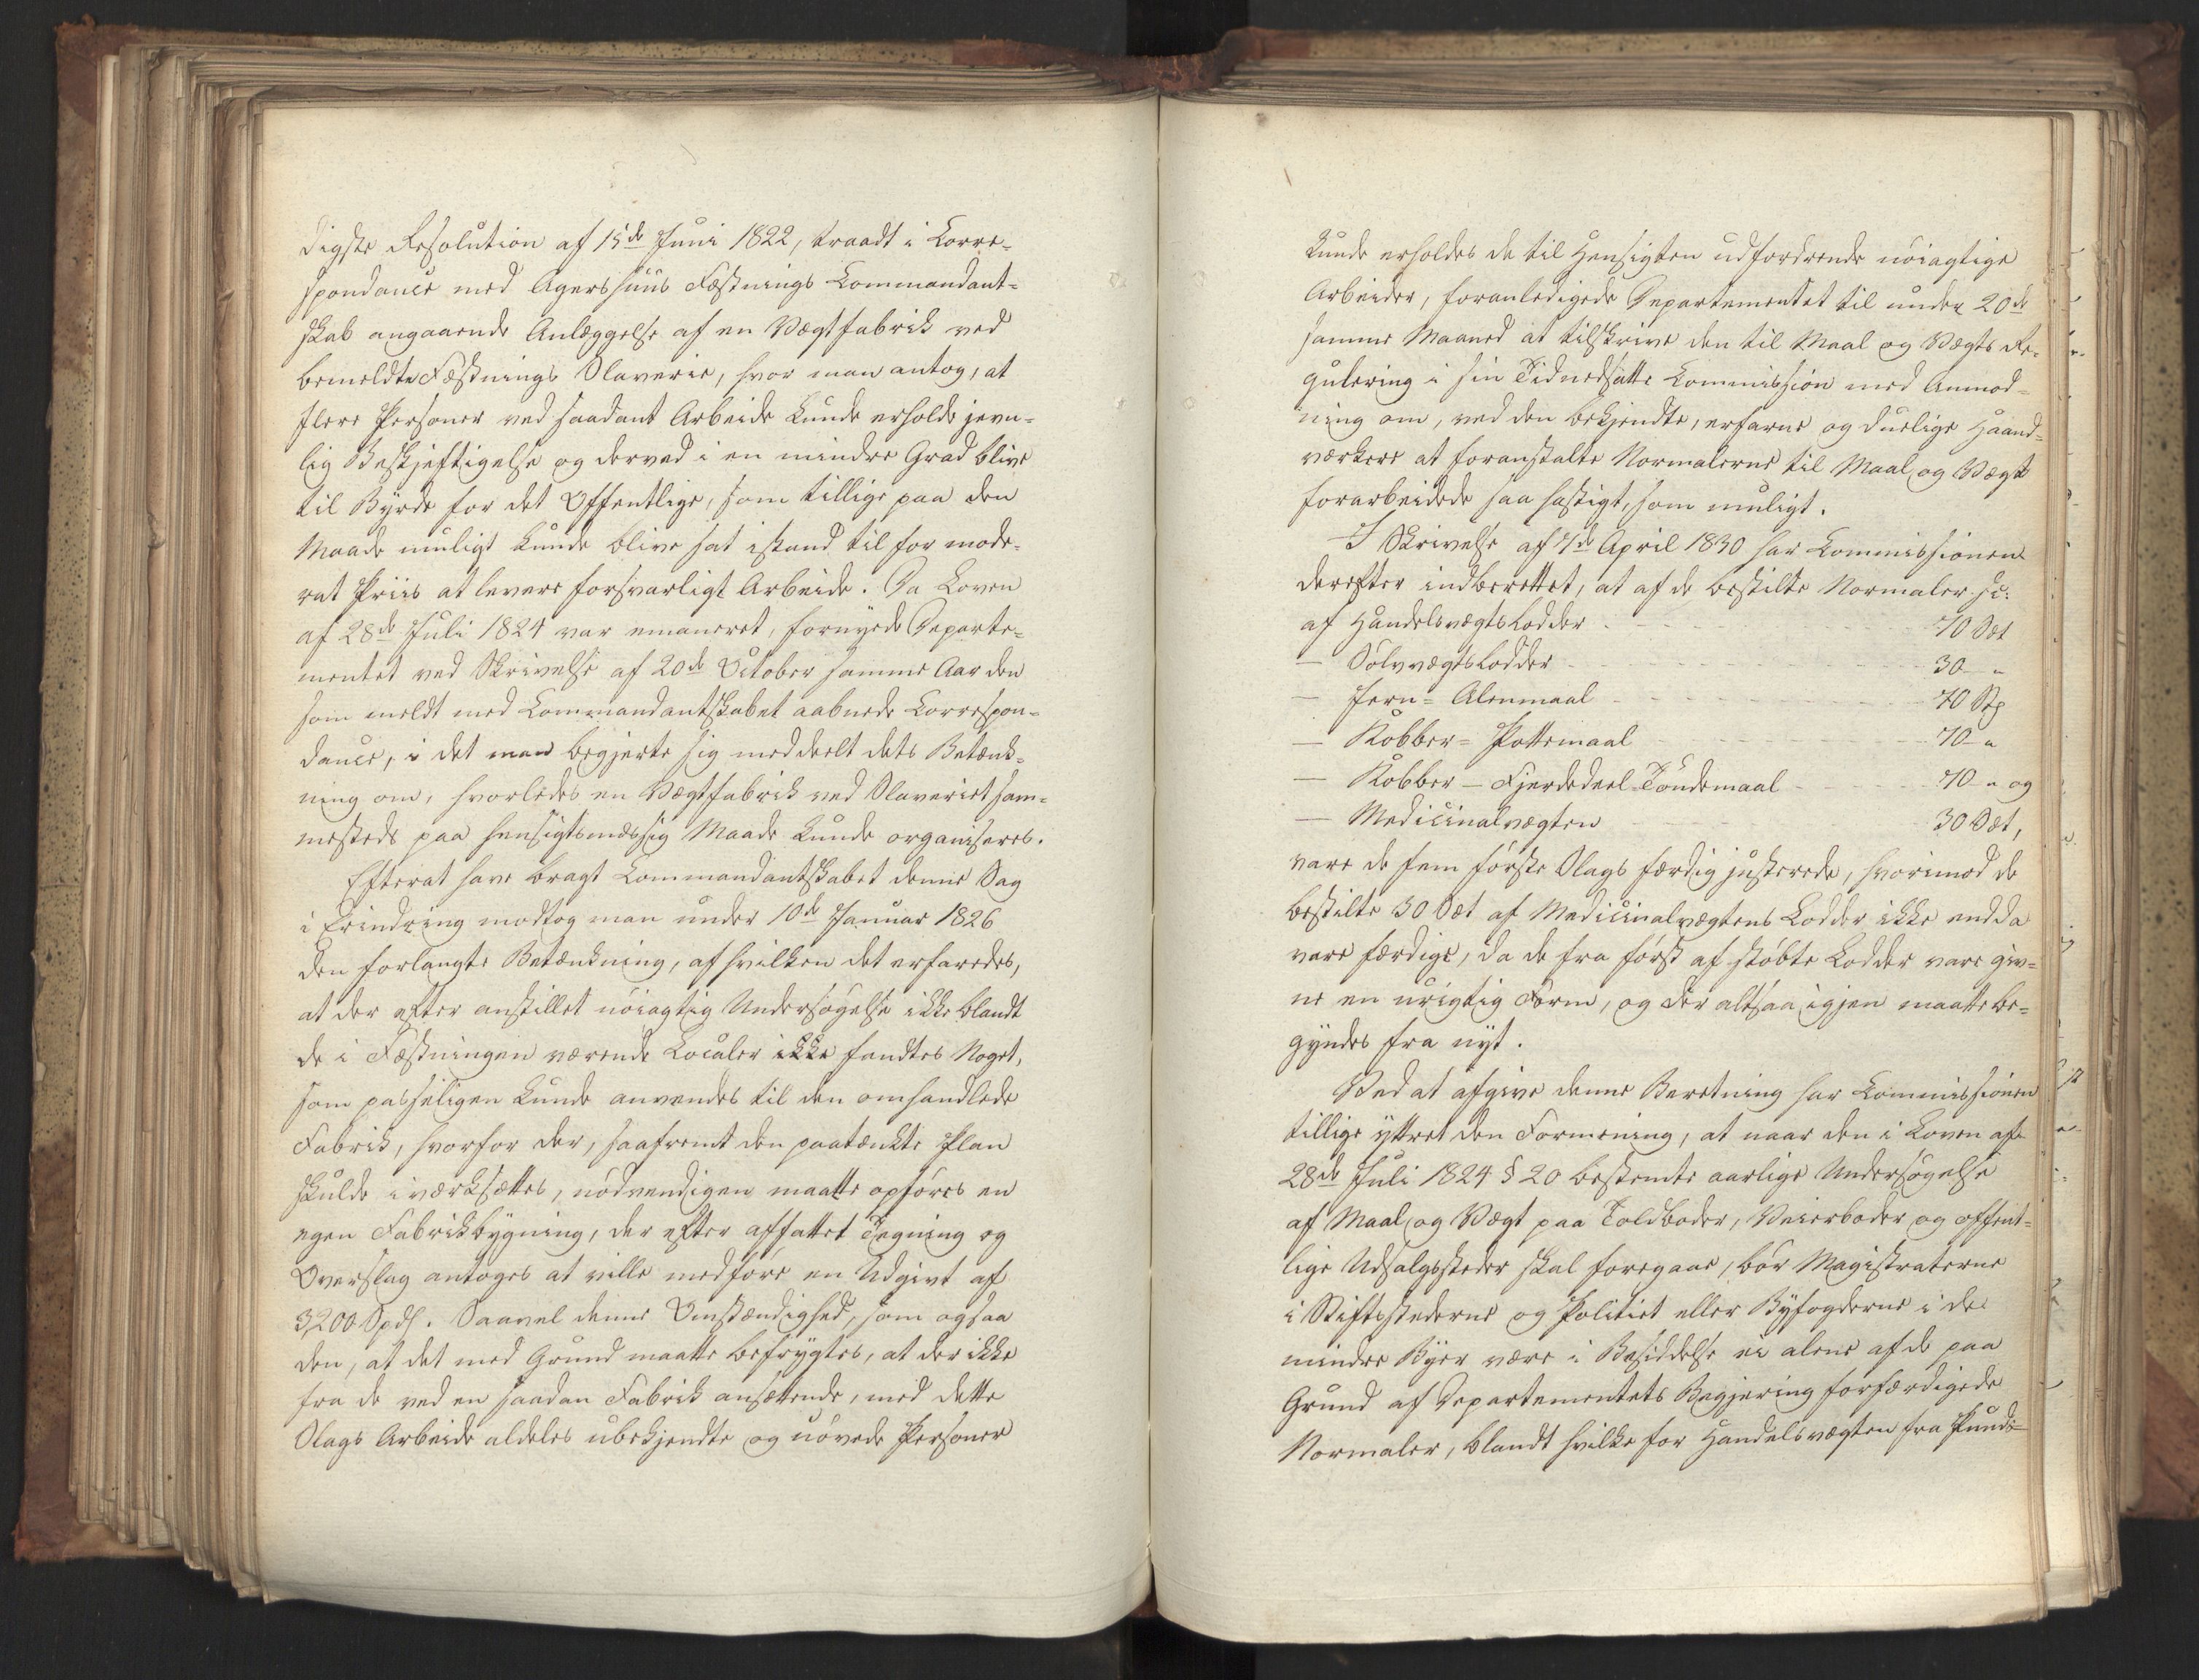 digste Resolution af 15de Juni 1822, traadt i Corre-
spondance med Agershuus Fæstnings Commandant-
skab angaaende Anlæggelse af en Vægtfabrik ved
bemeldte Fæstnings Slaverie, hvor man antog, at
flere Personer ved saadant Arbeide kunde erholde jevn-
lig Beskjeftigelse og derved i en mindre Grad blive
til Byrde for det Offentlige, som tillige paa den
Maade muligt kunde blive sat istand til for mode-
rat Priis at levere forsvarligt Arbeide. Da Loven
af 28de Juli 1824 var emaneret, fornyede Departe-
mentet ved Skrivelse af 20de October samme Aar den
som meldt med Commandantskabet aabnede Correspon-
dance, i det man begjerte sig meddeelt dets Betænk-
ning om, hvorledes en Vægtfabrik ved Slaveriet sam-
mesteds paa hensigtsmæssig Maade kunde organiseres.
Efterat have bragt Commandantskabet denne Sag
i Erindring modtog man under 10de Januar 1826
den forlangte Betænkning, af hvilken det erfaredes,
at der efter anstillet nöiagtig Undersögelse ikke blandt
de i Fæstningen værende Localer ikke fandtes Noget,
som passeligen kunde anvendes til den omhandlede
Fabrik, hvorfor der, saafremt den paatænkte Plan
skulde iværksættes, nödvendigen maatte opföres en
egen Fabrikbygning, der efter affattet Tegning og
Overslag antoges at ville medföre en Udgivt af
3,200 Spd. Saavel denne Omstændighed, som ogsaa
den, at det med Grund maatte befrygtes, at der ikke
fra de ved en saadan Fabrik ansættende, med dette
Slags Arbeide aldeles ubekjendte og uövede Personer
kunde erholdes de til Hensigten udfordrende nöiagtige
Arbeider, foranledigede Departementet til under 20de
samme Maaned at tilskrive den til Maal og Vægts Re-
gulering i sin Tid nedsatte Commission med Anmod-
ning om, ved den bekjendte, erfarne og duelige Haand-
værkere at foranstalte Normalerne til Maal og Vægt
forarbeidede saa hastigt, som muligt.
I Skrivelse af 7de April 1830 har Commissionen
derefter indberettet, at af de bestilte Normaler sc:
af Handelsvægtslodder 70 Sæt
— Sölvvægtslodder 30 "
— Jern- Alenmaal 70 Stp
— Kobber- Pottemaal 70 "
— Kobber- Fjerdedeel Töndemaal 70 " og
— Medicinalvægten 30 Sæt,
vare de fem förste Slags færdig justerede, hvorimod de
bestilte 30 Sæt af Medicinalvægtens Lodder ikke endda
vare færdige, da de fra först af stöbte Lodder vare giv-
ne en urigtig Form, og der altsaa igjen maatte be-
gyndes fra nyt.
Ved at afgive denne Beretning har Commissionen
tillige yttret den Formening, at naar den i Loven af
28de Juli 1824 § 20 bestemte aarlige Undersögelse
af Maal og Vægt paa Toldboder, Veierboder og offent-
lige Udsalgssteder skal foregaae, bör Magistraterne
i Stiftsstederne og Politiet eller Byfogderne i de
mindre Byer være i Besiddelse ei alene af de paa
Grund af Departementets Begjering forfærdigede
Normaler, blandt hvilke for Handelsvægten fra Punds-